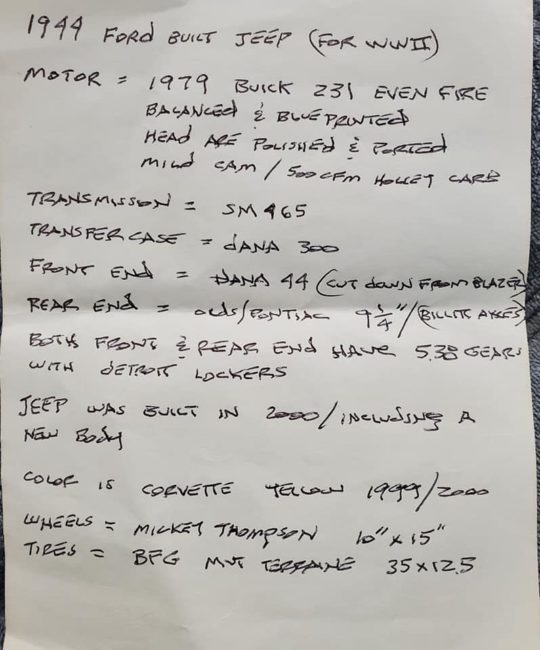 1944 FORD BUILT JEEP (FOR WWII)
MOTOR = 1979 BUICK 231 EVEN FIRE
BALANCED & BLUE PRINTED
HEAD ARE POLISHED & PORTED
MILD CAM / 500 CFM HOLLEY CARB
TRANSMISSION = SM 465
TRANSFER CASE = DANA 300
FRONT END = DANA 44 (CUT DOWN FROM BLAZER)
REAR END = OLDS/PONTIAC 9 1/4"/(BILLIT AXLES)
BOTH FRONT & REAR END HAVE 5.38 GEARS
WITH DETROIT LOCKERS
JEEP WAS BUILT IN 2000/INCLUDING A
NEW BODY
COLOR IS CORVETTE YELLOW 1999/2000
WHEELS = MICKEY THOMPSON 10" x 15"
TIRES = BFG MUT TERRAINE 35x12.5